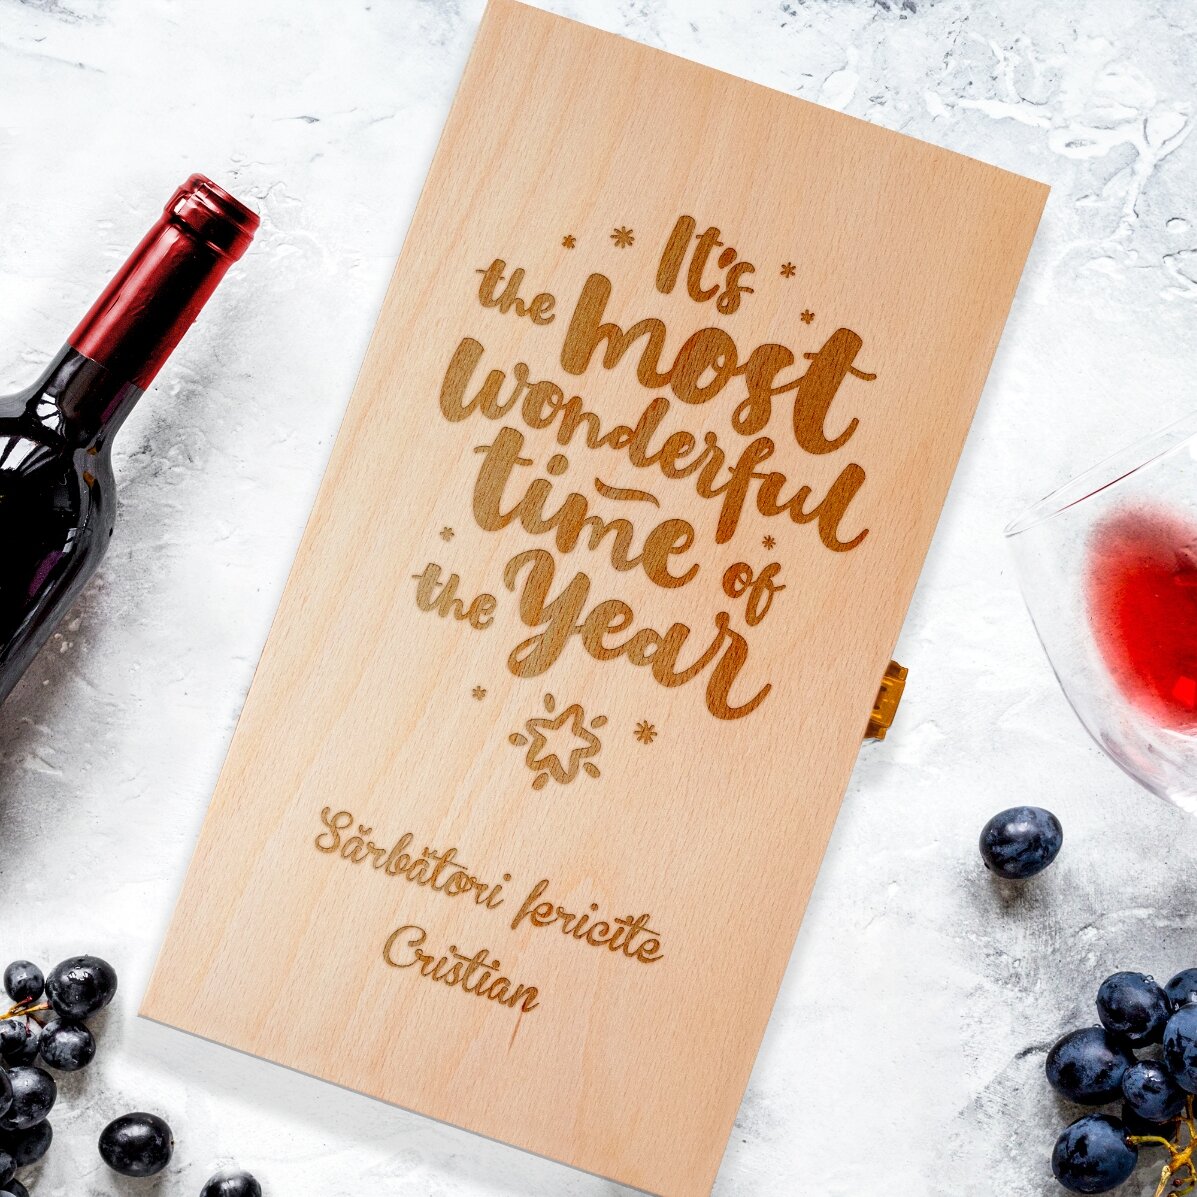 It's
the most
wonderful
time of
the Year
Sărbători fericite
Cristian